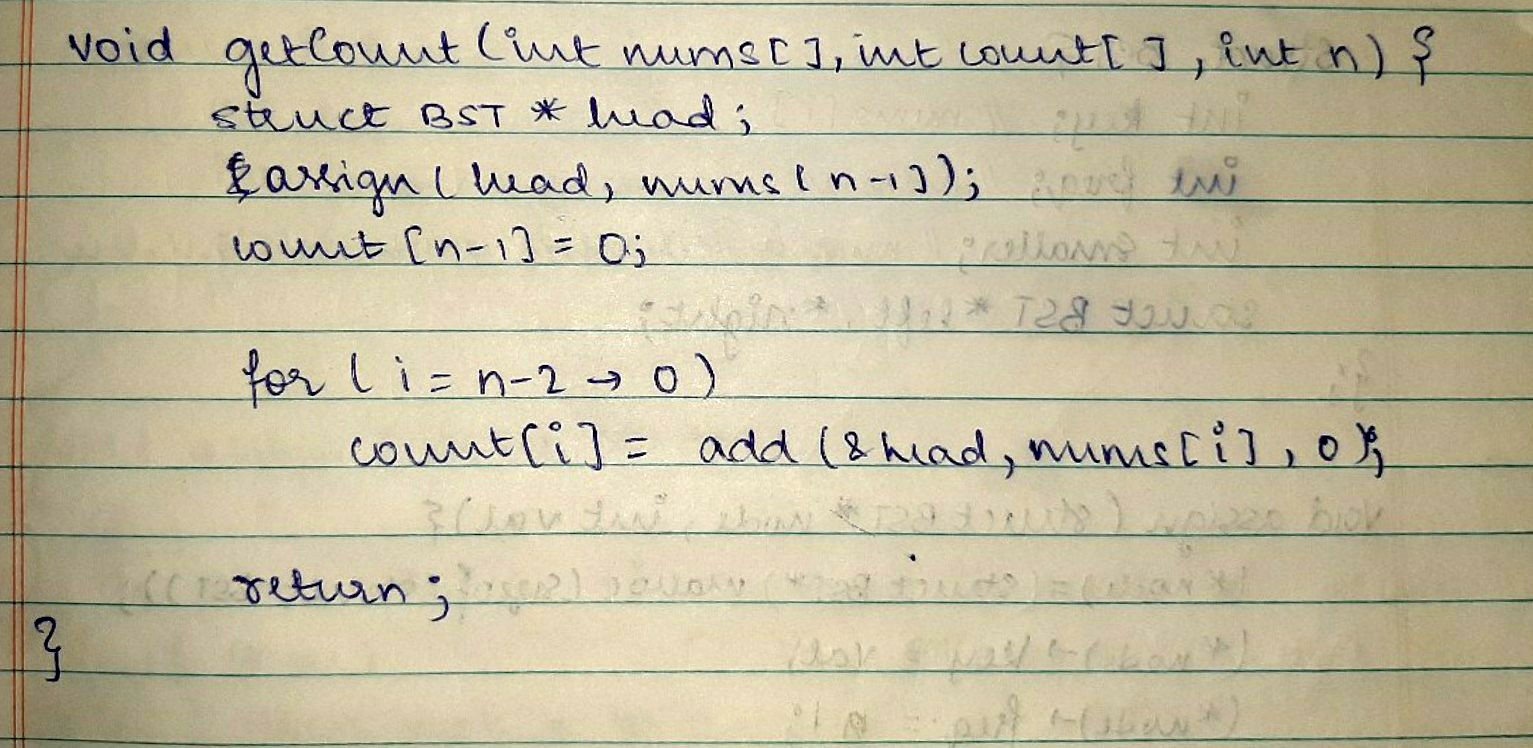 void getCount (int nums[], int count[], int n) {
struct BST * head;
assign (head, nums[n-1]);
count [n-1] = 0;
for (i = n-2 → 0)
count[i] = add (&head, nums[i], 0);
return;
}